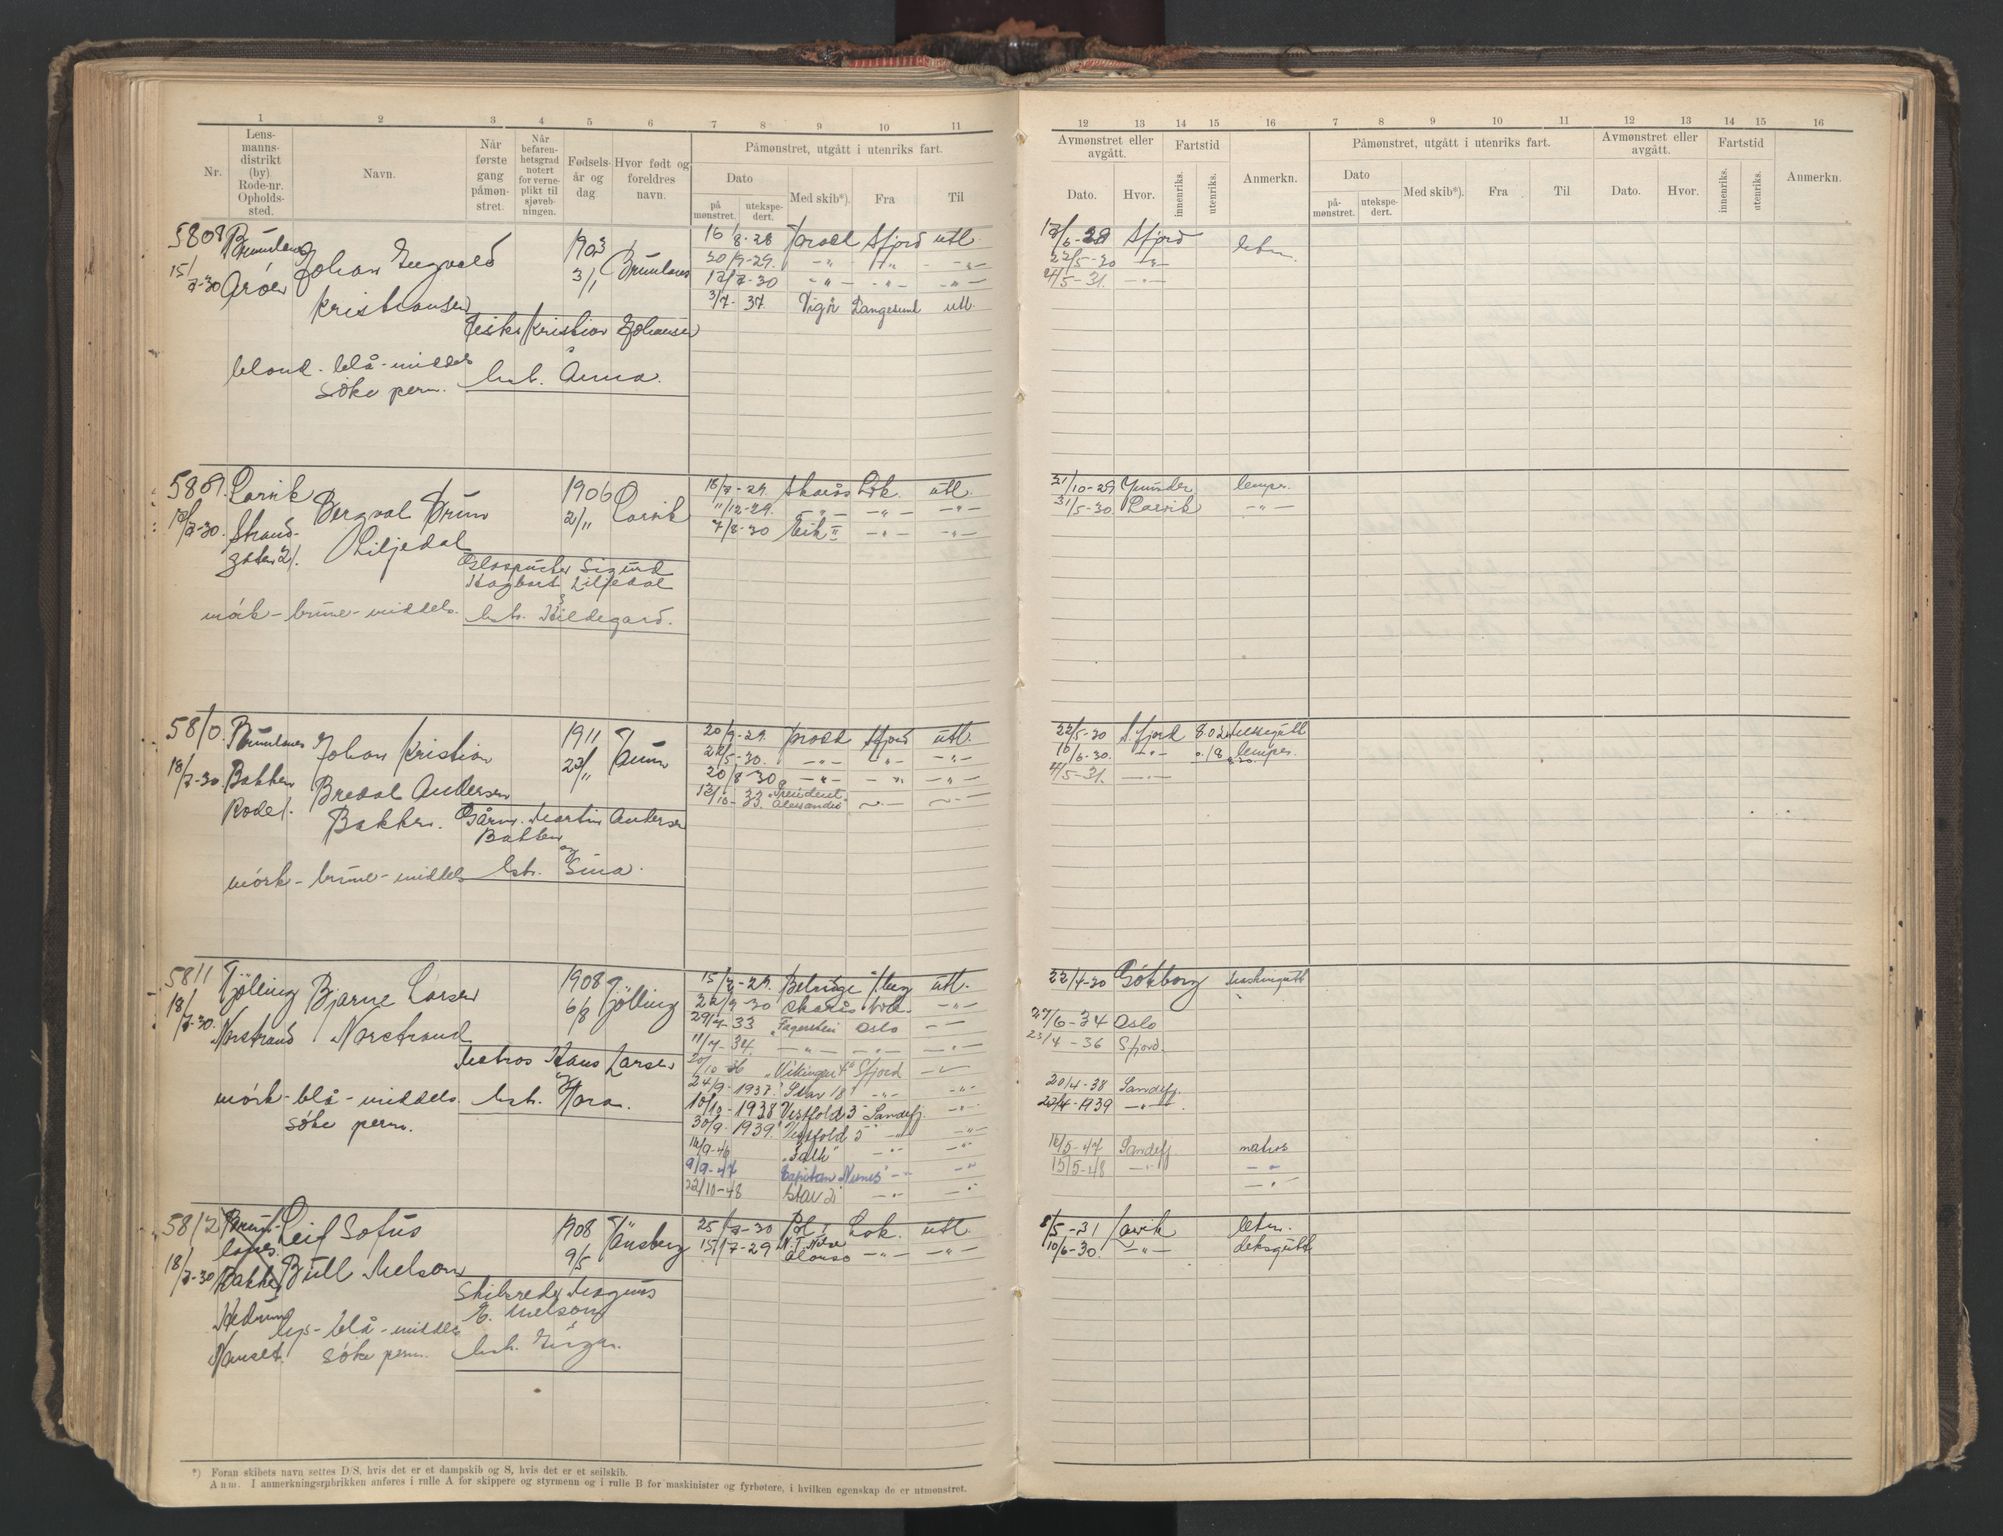 1 2 3 4 5 6 7 8 9 10 11
Nr.
Lens-
manns-
distrikt
(by)
Rode-nr.
Opholds-
sted.
Navn.
Når
første
gang
påmøn-
stret.
Når
befaren-
hetsgrad
notert
for verne-
plikt til
sjøveb-
ningen.
Fødsels-
år og
dag
Hvor født og
foreldres
navn.
Påmønstret, utgått i utenriks fart.
Dato
på
mønstret.
utekspe-
dert.
Med skib*).
Fra
Til
5808 Brunlanes Johan Ingvald 1903 Brunlanes
15/7-30 3/1
Kristiansen
Fisker Kristian Johansen
&
blond - blå - middels hst. Anna.
søke perm.
16/8-28 Sfjord utl.
20/9-29. -"- -"- -"-
17/7-30 -"- -"- -"-
3/7-37. Langesund utl.
5809. Larvik Bergval Brun 1906 Larvik
18/7-30. Strand- Liljedal 2/11
gaten 21.
Sigurd
Hagbart Liljedal
&
mörk - brune - middels. hst. Hildegard.
18/7-29. Skarås Lvk. utl.
11/12-29. -"- -"- -"-
7/8-30 Eik II -"- -"-
5810. Brunlanes Johan Kristian 1911 Tanum
18/7-30 Bakken Bredal Andersen 23/11
Rode 1. Bakken. Gårm. Martin Andersen
Bakken
og
mörk - brune - middels hst. Gina.
20/9-29. Sfjord utl.
22/5-30. -"- -"- -"-
20/8-30 -"- -"- -"-
13/10-33. "President
Alessandri"
5811 Tjölling Bjarne Larsen 1908 Tjölling
18/7-30. Norstrand Norstrand 6/8
Matros Hans Larsen
og
mörk - blå - middels. hst. Hora.
søke perm.
15/7-29. utl.
22/9-30 Skarås -"-
29/7-33 "Fagerstein" Oslo -"-
11/7-34. -"- -"- -"-
20/10-36 "Vikingen 4" Sfjord
24/9-1937. "Star 18" -"- -"-
10/10-1938 Vestfold 3 Sandefj. -"-
30/9-1939. "Vestfold 5" -"- -"-
16/9-46 -"- -"-
9/9-47 Kapitan Nunes" -"- -"-
22/10-48 -"- -"-
5812 Brun-
lanes. Leif Sofus 1908 Tönsberg
18/7-30 Bakken Bull Nelson 9/5
Skibsreder Magnus
E. Nelson
Hedrum lys - blå - middels
Nanset. søke perm. hst. Inga.
25/7-30 Pol Lvk. utl.
15/7-29 N. T. Nielsen
Alonso -"- -"-
*) Foran skibets navn settes D/S, hvis det er et dampskib og S, hvis det er et seilskib.
Anm. I anmerkningsrubrikken anføres i rulle A for skippere og styrmenn og i rulle B for maskinister og fyrbøtere, i hvilken egenskap de er utmønstret.
12 13 14 15 16 7 8 9 10 11 12 13 14 15 16
Avmønstret eller
avgått.
Dato. Hvor.
Fartstid
innenriks. utenriks.
Anmerkn.
Påmønstret, utgått i utenriks fart.
Dato
på-
mønstret.
utekspe-
dert.
Med skib*). Fra Til
Avmønstret eller
avgått.
Dato. Hvor.
Fartstid
innenriks. utenriks.
Anmerkn.
Sfjord letm.
22/5-30 -"-
4/5-31. -"-
21/10-29 lemper.
31/5-30 Larvik -"-
22/5-30 S.fjord 8.02
16/6-30. -"- lemper.
4/5-31. -"-
22/4-30 Göteborg Maskingutt
27/6-34 Oslo
23/4-36 Sfjord.
20/4-38 Sandefj.
23/4-1939 -"-
16/5-47 Sandefj. matros
15/5-48 -"- -"-
-"- -"-
8/5-31 Larvik letm.
10/6-30. -"- deksgutt